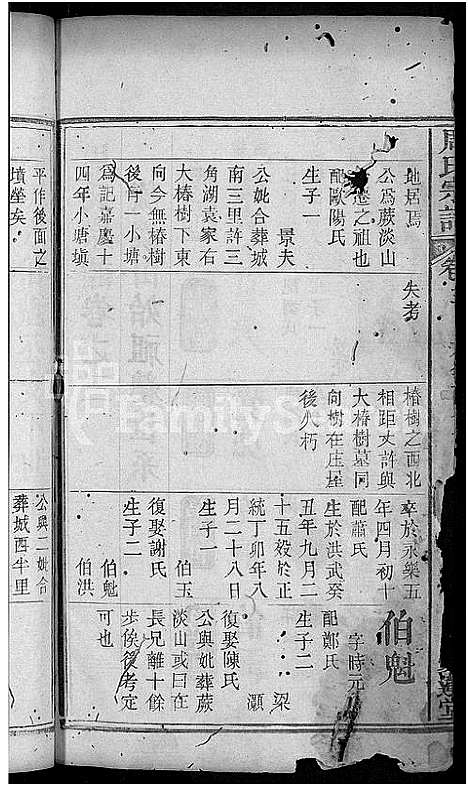 周氏宗譜
地居焉
公爲蕨淡山
之祖也
配歐陽氏
生子一
景夫
公妣合葬城
南三里許三
角湖袁家右
大椿樹下東
向今無椿樹
後有一小塘
爲記嘉慶十
四年小塘塡
平作後面之
墳塋矣
失考
椿樹之西北
相距丈許與
大椿樹墓同
向樹在庄屋
後久朽
卒於永樂五
年四月初十
配蕭氏
生於洪武癸
丑年九月二
十五歿於正
統丁卯年八
月二十八日
生子一
伯玉
復娶謝氏
生子二
伯魁
伯洪
公與二妣合
葬城西半里
伯魁
字時元
配鄭氏
生子二
梁
灝
復娶陳氏
公與妣葬蕨
淡山或曰在
長兄離十餘
步俟後考定
可也
FamilyS